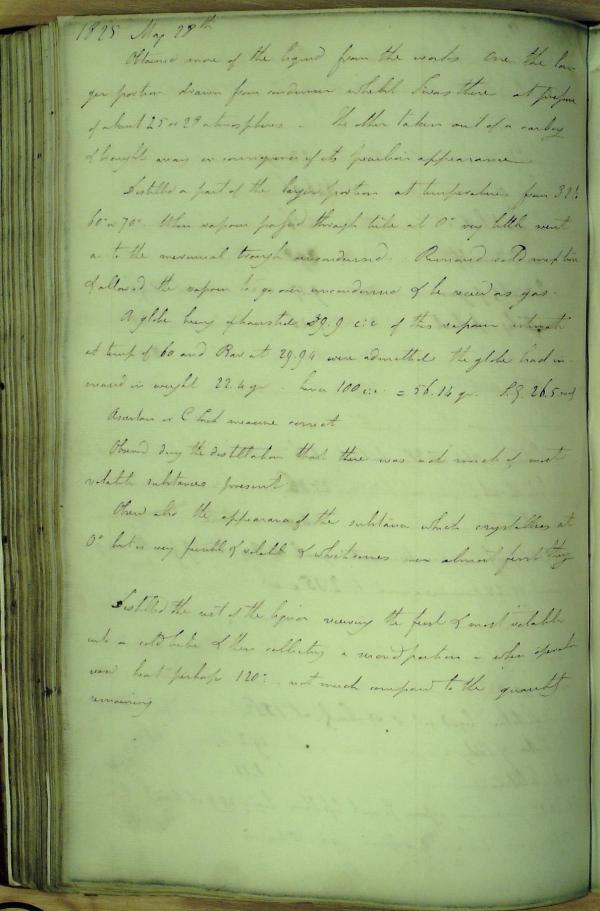 1825 May 28th
Obtained more of the liquid from the works one the lar-
ger portion drawn from condenser whilst I was there at pressure
of about 25 or 28 atmospheres - The other taken out of a carboy
& brought away in consequence of its peculiar appearance
Distilled a part of the larger portion at temperature from 32 to
60° or 70°. When vapour passed through tube at 0° very little went
on to the mercurial trough uncondensed. Removed cold mixture
& allowed the vapour to go over uncondensed & be received as gas.
A globe being exhausted 39.9 c.i.c of this vapour
at temp of 60 and Bar at 29.94 were admitted the globe had in-
creased in weight 22.4 gr. hence 100 c.i. = 56.14 gr. S.G. 26.5
Ascertain if C Inch measure correct
Observed during the distillation that there was not much of most
volatile substances present
Observe also the appearance of the substance which crystallizes at
0° but is very fusible & volatile & which comes over almost first thing
Distilled the rest of the liquor receiving the first & most volatile
into a cold tube & then collecting a second portion - when operation
was heat perhaps 120° - not much compared to the quantity
remaining